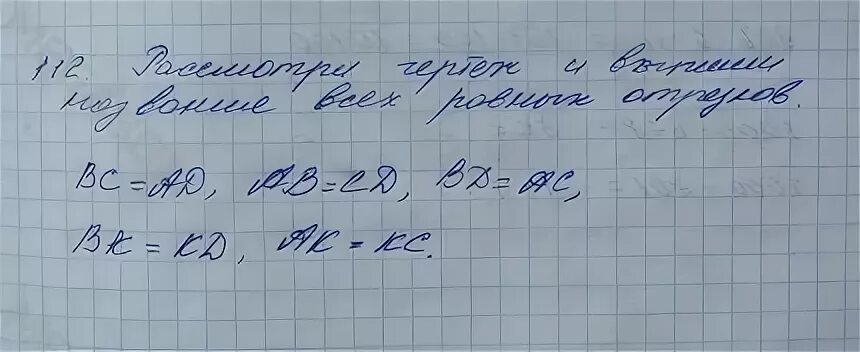 112. Рассмотри чертеж и выпиши
название всех равных отрезков.
BC = AD, AB = CD, BD = AC,
BK = KD, AK = KC.